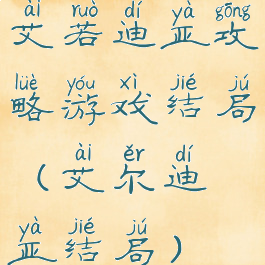 ài ruò dí yà gōng
艾若迪亚攻
lüè yóu xì jié jú
略游戏结局
ài ěr dí
（艾尔迪
yà jié jú
亚结局）